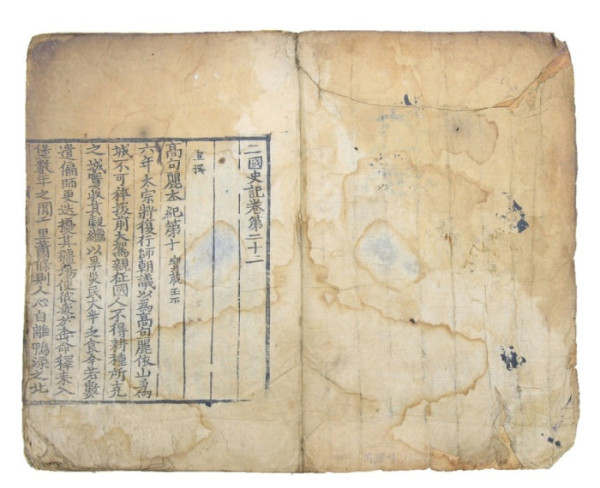 三國史記卷第二十二
宣撰
高句麗本紀第十 寶藏王下
六年 太宗將復行師朝議以爲高句麗依山爲
城不可猝拔前大駕親征國人不得耕種所克
之城實收其穀繼以旱災民太半乏食今若數
遣偏師更迭擾其疆埸使彼疲於奔命釋耒入
堡數年之間千里蕭條則人心自離鴨淥之北